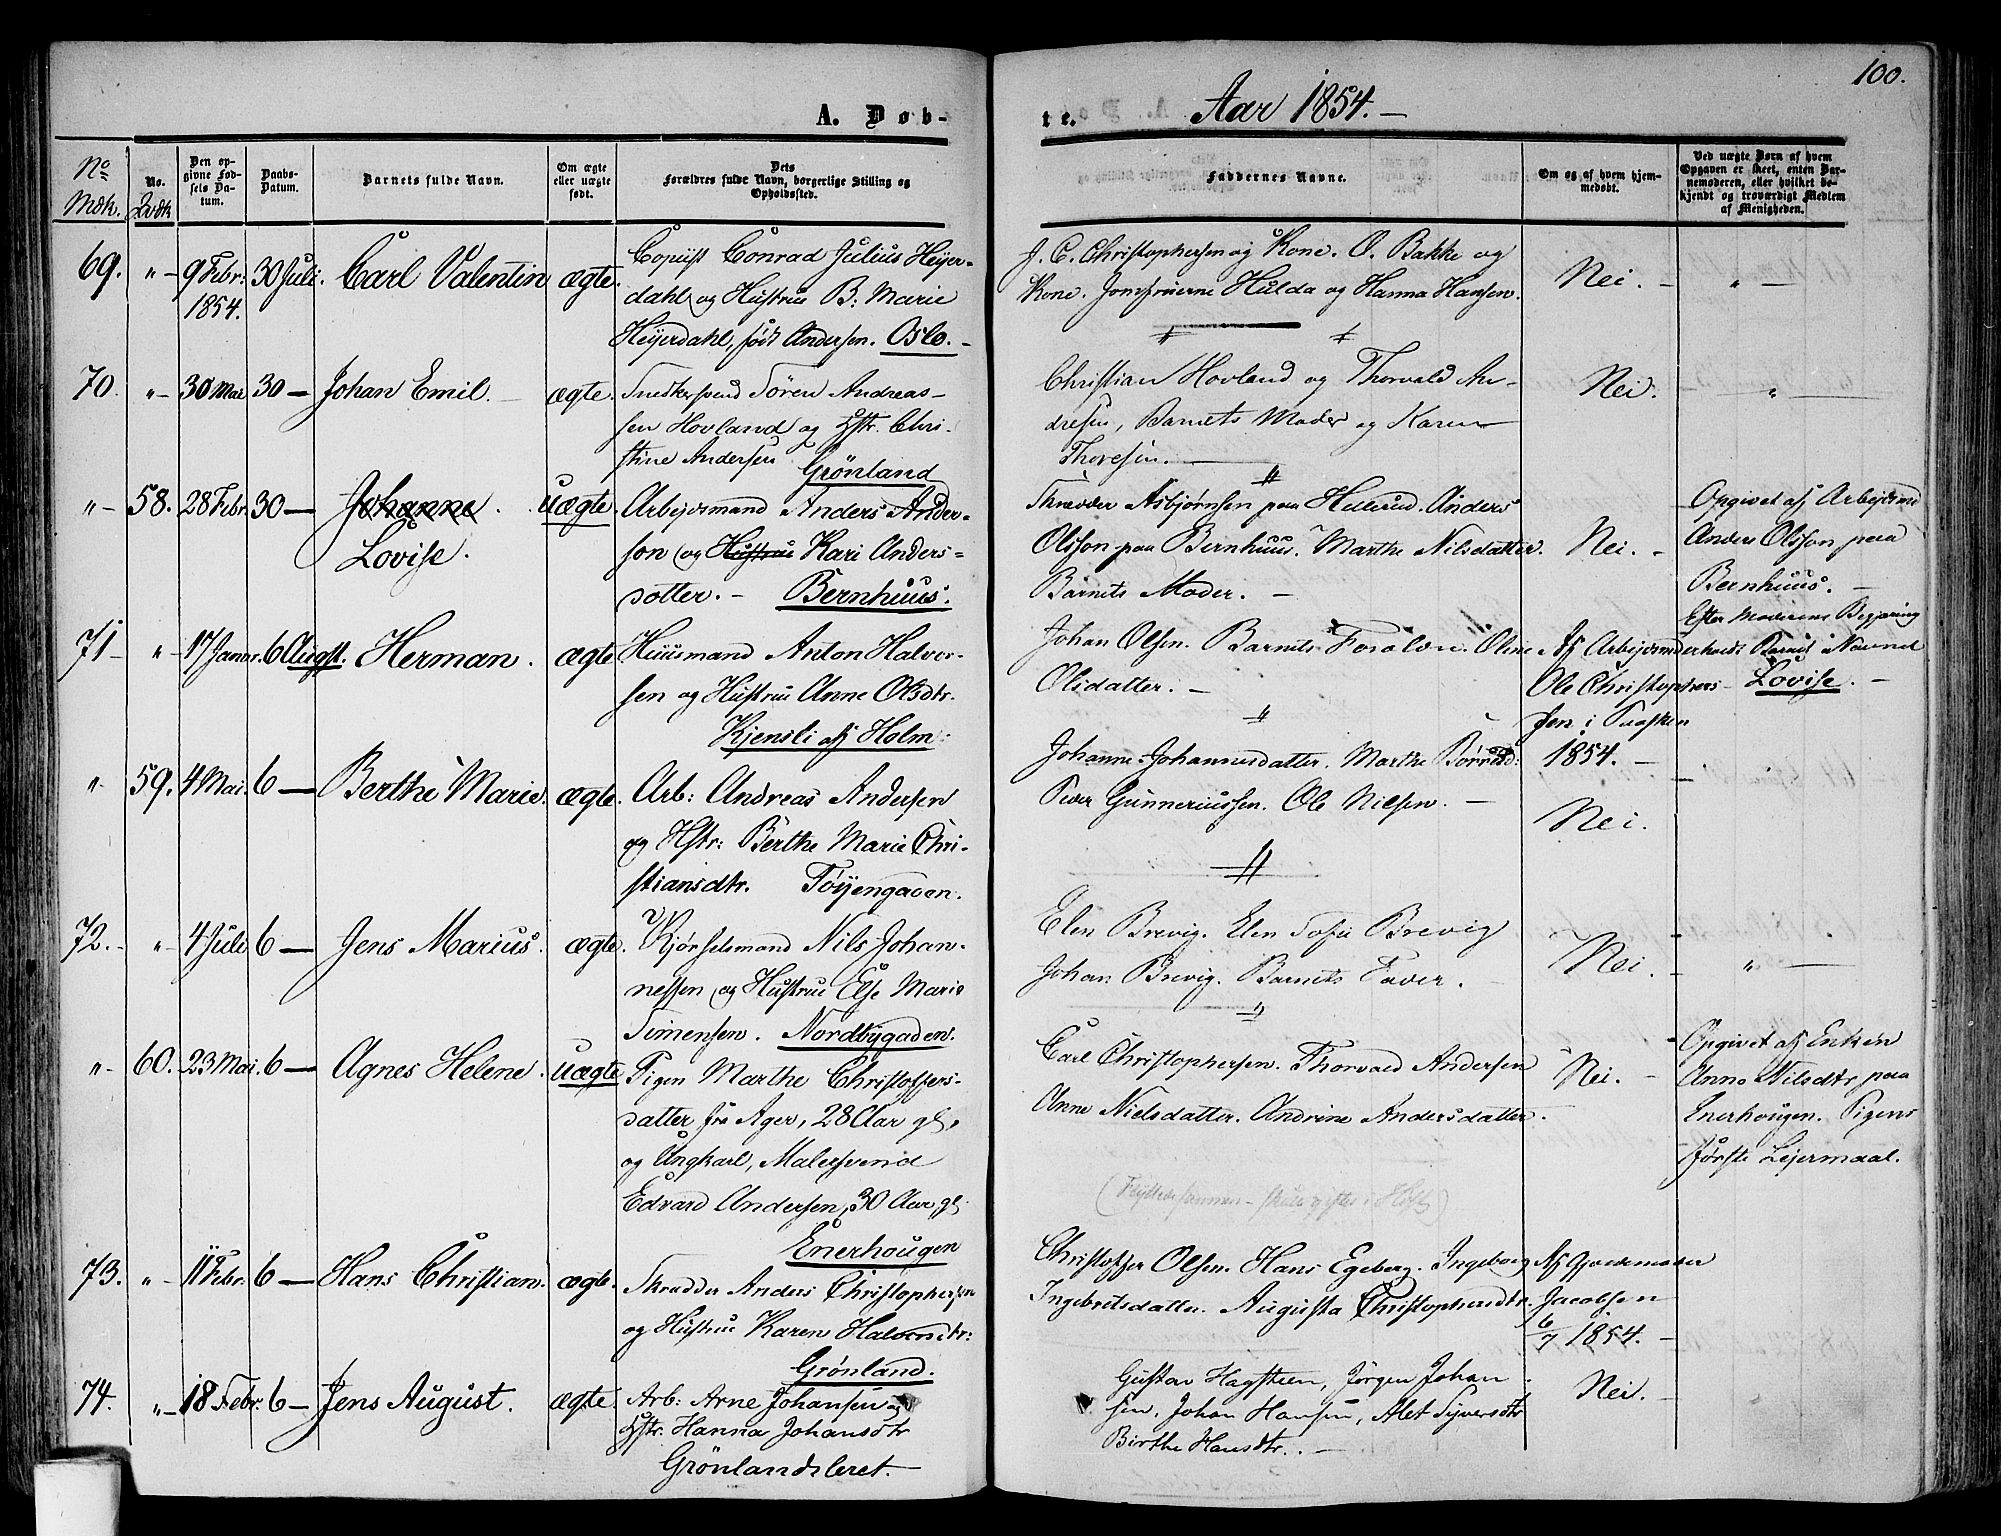 100.
A. Døb-
te.
Aar 1854. –
No Mdk.
No. Qvdk
Den op-
givne Fød-
sels Da-
tum.
Daabs-
Datum.
Barnets fulde Navn.
Om ægte
eller uægte
født.
Dets
Forældres fulde Navn, borgerlige Stilling og
Opholdssted.
Faddernes Navne.
Om og af hvem hjem-
medøbt.
Ved uægte Børn af hvem
Opgaven er skeet, enten Bar-
nemoderen, eller hvilket be-
kjendt og troværdigt Medlem
af Menigheden.
69. „– 9 Febr: 30 Juli. Carl Valentin ægte. Copiist Conrad Julius Heyer-
1854.
dahl og Hustrue B. Marie
Heyerdahl, født Andersen. Oslo. –
J. C. Christophersen og Kone. O. Bakke og
Kone. Jomfruerne Hulda og Hanna Hansen.
Nei. – „ –
70. „– 30 Mai 30 – Johan Emil. – ægte. Snedkersvend Sören Andreas-
sen Hovland og Hstr. Chri-
stine Andersen Grönland
Christian Hovland og Thorvald An-
dresen, Barnets Moder og Karen
Thoresen. –
Nei. „
„– 58. 28 Febr 30 – Johanne. uægte. Arbejdsmand Anders Ander-
Lovise.
son og Hustrue Kari Anders-
dotter. – Bernhuus.
Skrædder Asbjørnsen paa Hellerud. Anders
Olsson paa Bernhuus. Marthe Nilsdatter.
Barnets Moder. –
Nei. –
Opgivet af Arbejdsmd
Anders Olsson paa
Bernhuus. –
Efter Moderens Begjæring
Barnet Navnet
Lovise. –
71 – „– 17 Januar. 6 Augst. Herman. ægte. Huusmand Anton Halvor-
sen og Hustrue Anne Olsdtr.
Kjensli af Holm.
Johan Olsen. Barnets Foræltre. Oline
Olsdatter. –
Af Arbejdsmd
Ole Christophers-
sen i Paasken
1854. –
„ 59. 4 Mai. 6 – Berthe Marie. ægte. Arb: Andreas Andersen
og Hstr: Berthe Marie Chri-
stiansdtr. Töyengaden.
Johanne Johannesdatter. Marthe
Peder Gunneriussen. Ole Nilsen. –
Nei.
72. – „ 4 Juli 6 – Jens Marius. ægte. Kjørselsmand Nils Johan-
nessen og Hustrue Else Marie
Simensen. Nordbygaden.
Elen Brevig. Elen Sofie Brevig
Johan Brevig. Barnets Fader.
Nei. – „ –
„– 60. 23 Mai. 6 – Agnes Helene. uægte Pigen Marthe Christoffers-
datter fra Ager, 28 Aar gl,
og Ungkarl, Malersvend
Edvard Andersen, 30 Aar gl.
Enerhougen
Carl Christophersen. Thorvald Andersen
Anne Nielsdatter. Andrine Andersdatter.
Nei. –
Opgivet af Enken
Anne Nilsdtr paa
Enerhougen. Pigens
første Lejermaal.
(Flyttede sammen – skulle giftes i Höst)
73. „– 11 Febr. 6 – Hans Christian. ægte. Skrædder Anders Christophersen
og Hustrue Karen Halvorsdtr:
Grönland.
Christoffer Olsen. Hans Egeberg. Ingeborg
Ingebretsdatter. Augusta Christophersdtr.
Af Gjordemoder
Jacobsen
6/7 1854. –
74. „– 18 Febr. 6 – Jens August. ægte. Arb: Arne Johansen og
Hstr. Hanna Johansdtr
Grönlandsleret. –
Gustav Hagsteen, Jörgen Johan-
sen. Johan Hansen, Alet Syversdtr
Birthe Hansdtr. –
Nei. –